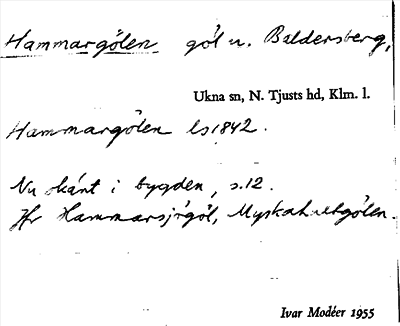 Hammargölen göl u. Baldersberg,
Ukna sn, N. Tjusts hd, Klm. l.
Hammargölen ls 1842.
Nu okänt i bygden, s. 12.
Jfr Hammarsjögöl, Myskahultgölen.
Ivar Modéer 1955